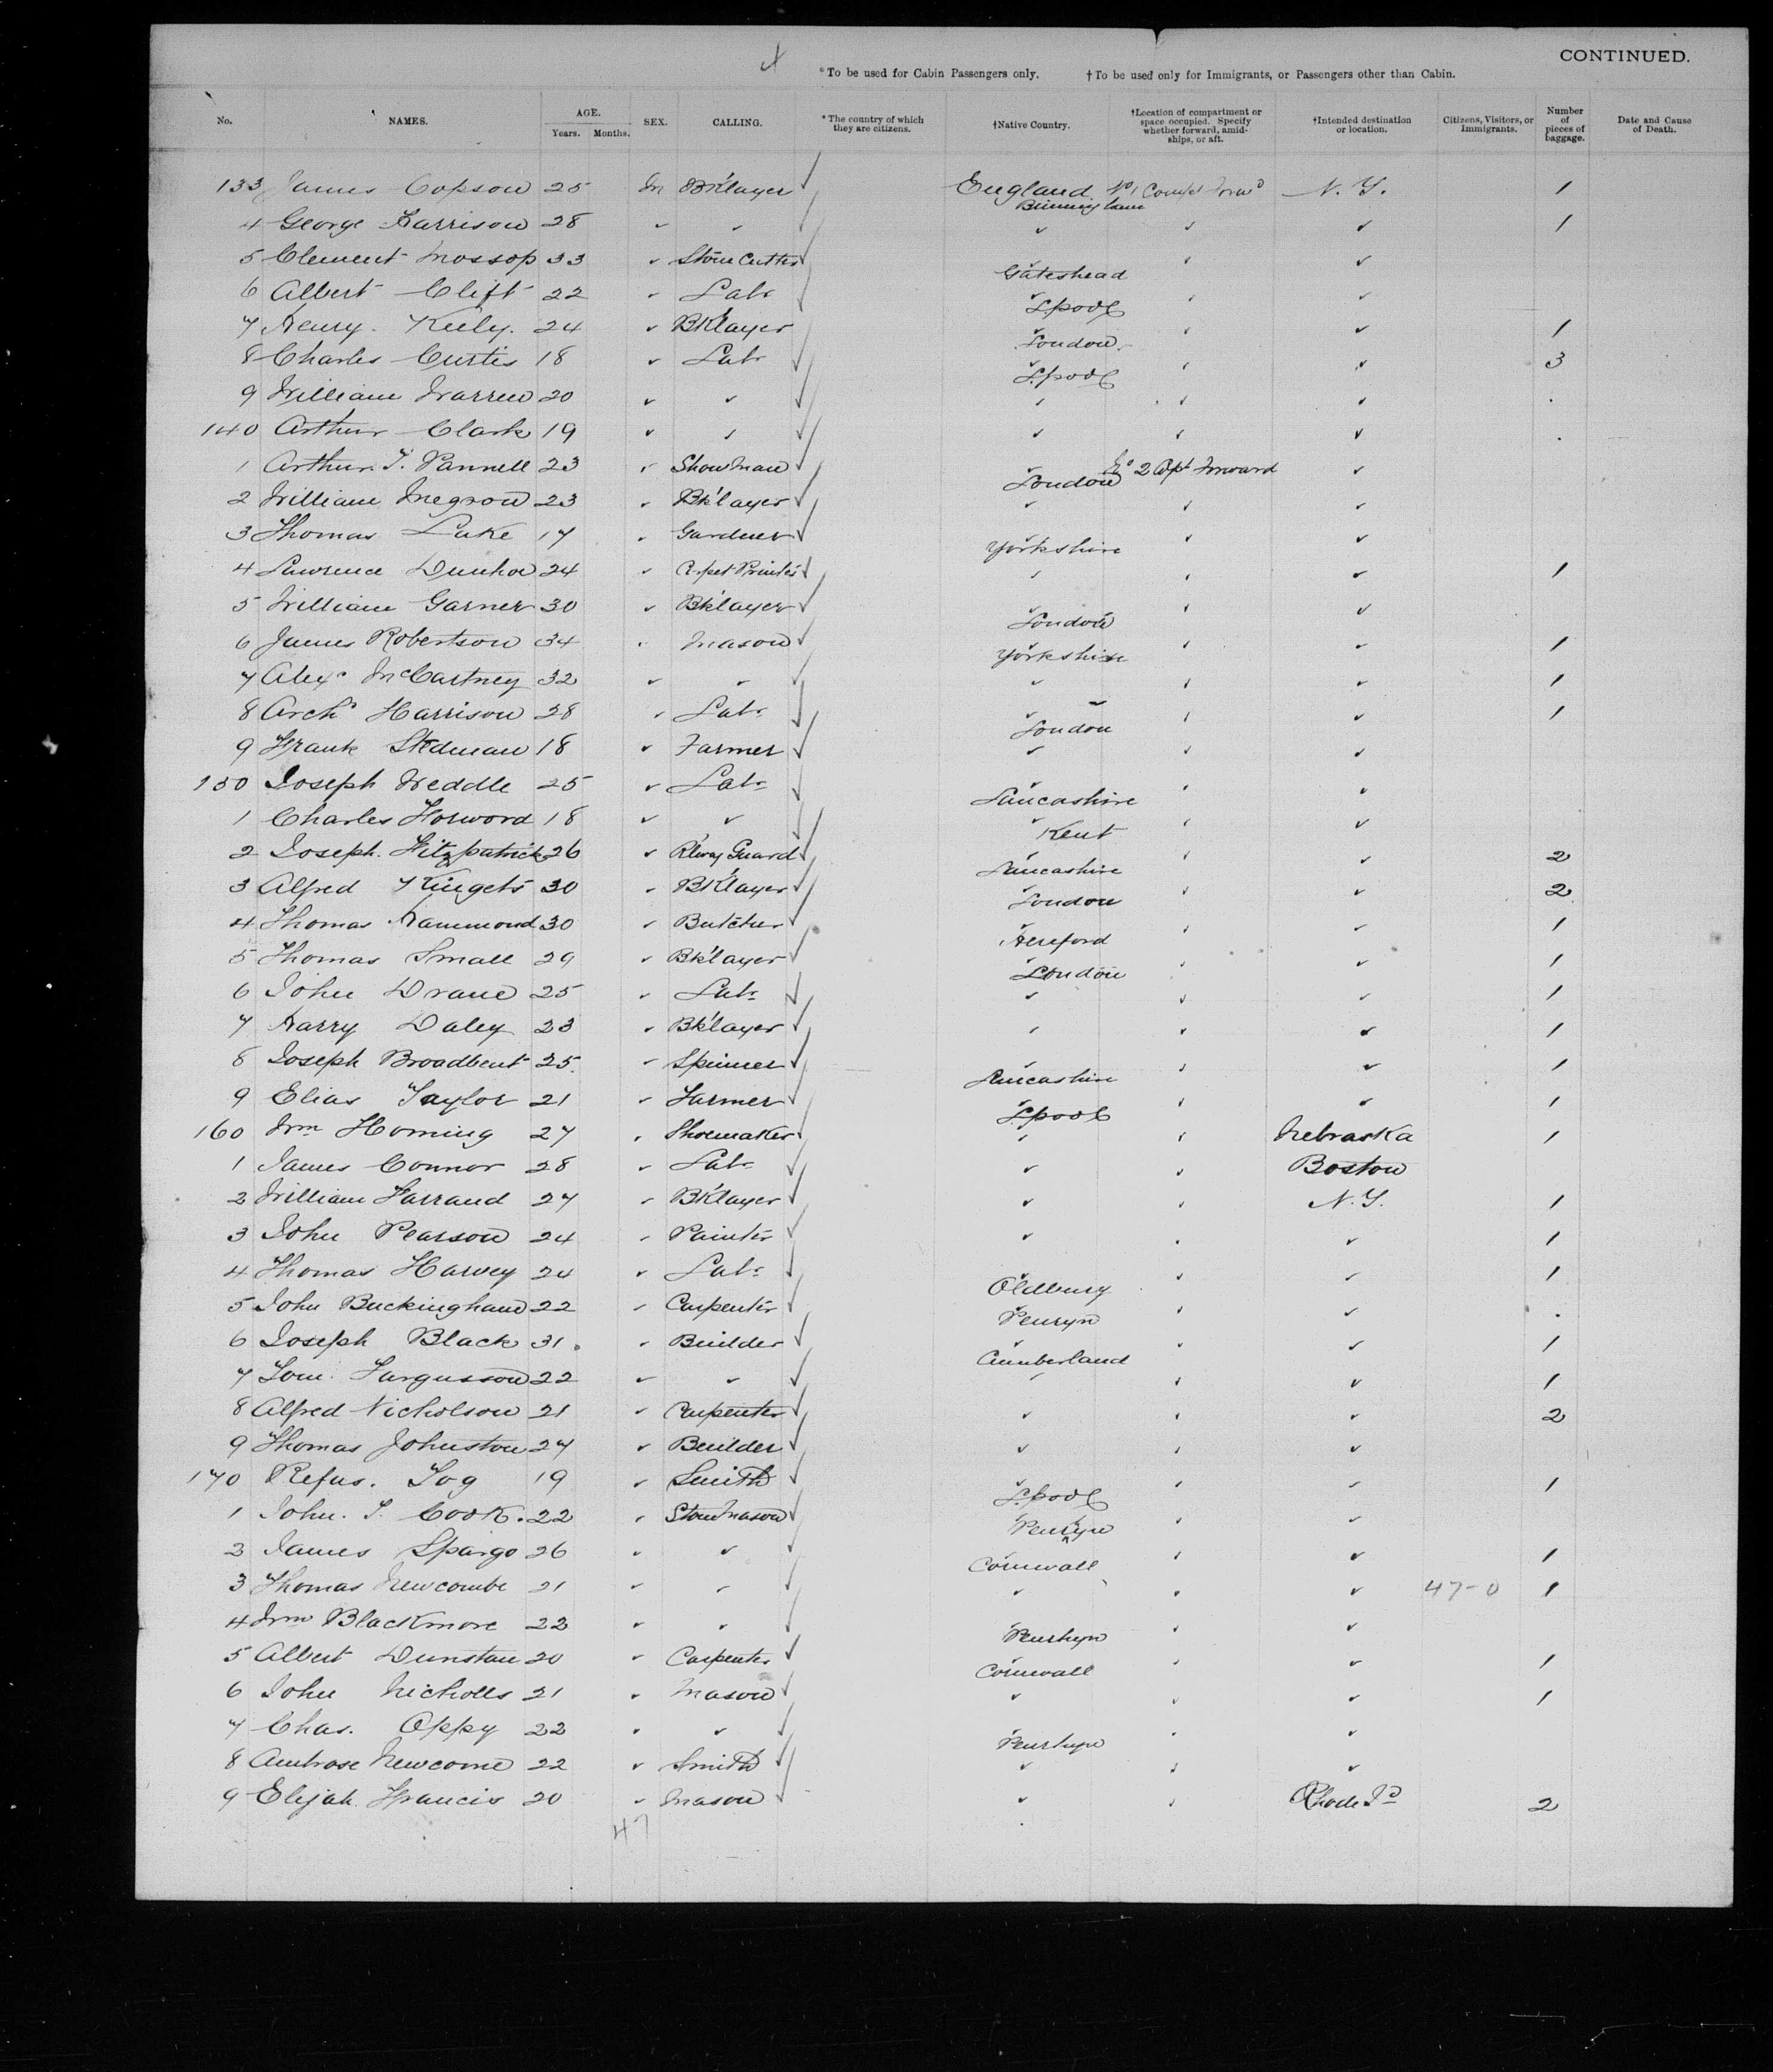 CONTINUED.
*To be used for Cabin Passengers only. †To be used only for Immigrants, or Passengers other than Cabin.
No. NAMES. AGE. Years. Months. SEX. CALLING. *The country of which they are citizens. †Native Country. †Location of compartment or space occupied. Specify whether forward, amidships, or aft. †Intended destination or location. Citizens, Visitors, or Immigrants. Number of pieces of baggage. Date and Cause of Death.
133 James Copson 25 M Bk'layer ✓ England Birmingham No 1 Compt Forwd N.Y. 1
4 George Harrison 28 ✓ ✓ ✓ ✓ ✓ 1
5 Clement Mossop 33 ✓ Stone Cutter ✓ Gateshead ✓ ✓
6 Albert Clift 22 ✓ Labr L'pool ✓ ✓
7 Henry. Keely. 24 ✓ Bk'layer London. ✓ ✓ 1
8 Charles Curtis 18 ✓ Labr L'pool ✓ ✓ 3
9 William Warren 20 ✓ ✓ ✓ ✓ ✓
140 Arthur Clark 19 ✓ ✓ ✓ ✓ ✓
1 Arthur. T. Pannell 23 ✓ Show Man London No 2 Apt Forward ✓
2 William Megson 23 ✓ Bk'layer ✓ ✓ ✓
3 Thomas Lake 17 ✓ Gardner Yorkshire ✓ ✓
4 Lawrence 24 ✓ Carpet Printer ✓ ✓ ✓ 1
5 William Garner 30 ✓ Bk'layer London ✓ ✓
6 James Robertson 34 ✓ Mason Yorkshire ✓ ✓ 1
7 Alexr McCartney 32 ✓ ✓ ✓ ✓ ✓ 1
8 Archd Harrison 28 ✓ Labr London ✓ ✓ 1
9 Frank Stedman 18 ✓ Farmer ✓ ✓ ✓
150 Joseph Weddle 25 ✓ Labr Lancashire ✓ ✓
1 Charles Horword 18 ✓ ✓ Kent ✓ ✓
2 Joseph. Fitzpatrick 26 ✓ R'lway Guard Lancashire ✓ ✓ 2
3 Alfred 30 ✓ Bk'layer London ✓ ✓ 2
4 Thomas Hammond 30 ✓ Butcher Hereford ✓ ✓ 1
5 Thomas Small 29 ✓ Bk'layer London ✓ ✓ 1
6 John Drane 25 ✓ Labr ✓ ✓ ✓ 1
7 Harry Daley 23 ✓ Bk'layer ✓ ✓ ✓ 1
8 Joseph Broadbent 25. ✓ Spinner Lancashire ✓ ✓ 1
9 Elias Taylor 21 ✓ Farmer L'pool ✓ ✓ 1
160 Wm Horning 27 ✓ Shoemaker ✓ ✓ Nebraska 1
1 James Connor 28 ✓ Labr ✓ ✓ Boston
2 William Farrand 27 ✓ Bk'layer ✓ ✓ N.Y. 1
3 John Pearson 24 ✓ Painter ✓ ✓ ✓ 1
4 Thomas Harvey 24 ✓ Labr Oldbury ✓ ✓ 1
5 John Buckingham 22 ✓ Carpenter Penryn ✓ ✓
6 Joseph Black 31 ✓ Builder Cumberland ✓ ✓ 1
7 Tom. Fargusson 22 ✓ ✓ ✓ ✓ ✓ 1
8 Alfred Nicholson 21 ✓ Carpenter ✓ ✓ ✓ 2
9 Thomas Johnston 27 ✓ Builder ✓ ✓ ✓
170 Refus. 19 ✓ Smith L'pool ✓ ✓ 1
1 John. T. Cook. 22 ✓ Stone Mason Penryn ✓ ✓
2 James Spargo 26 ✓ ✓ Cornwall ✓ ✓ 1
3 Thomas Newcombe 21 ✓ ✓ ✓ ✓ ✓ 47-0 1
4 Wm Blackmore 22 ✓ ✓ Penrhyn ✓ ✓
5 Albert Dunstan 20 ✓ Carpenter Cornwall ✓ ✓ 1
6 John Nicholls 21 ✓ Mason ✓ ✓ ✓ 1
7 Chas. Oppy 22 ✓ ✓ Penrhyn ✓ ✓
8 Ambrose Newcome 22 ✓ Smith ✓ ✓ ✓
9 Elijah Francis 20 ✓ Mason ✓ ✓ Rhode Id 2
47